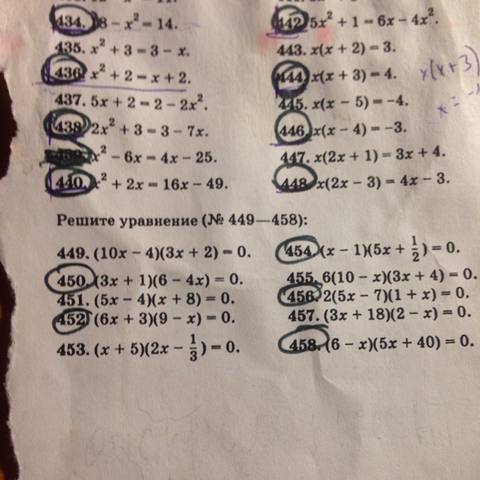 434. 8 − x² = 14.
435. x² + 3 = 3 − x.
436. x² + 2 = x + 2.
437. 5x + 2 = 2 − 2x².
438. 2x² + 3 = 3 − 7x.
x² − 6x = 4x − 25.
440. x² + 2x = 16x − 49.
442. 5x² + 1 = 6x − 4x².
443. x(x + 2) = 3.
444. x(x + 3) = 4.
445. x(x − 5) = −4.
446. x(x − 4) = −3.
447. x(2x + 1) = 3x + 4.
448. x(2x − 3) = 4x − 3.
x(x+3)
x = −
Решите уравнение (№ 449—458):
449. (10x − 4)(3x + 2) = 0.
450. (3x + 1)(6 − 4x) = 0.
451. (5x − 4)(x + 8) = 0.
452. (6x + 3)(9 − x) = 0.
453. (x + 5)(2x − 1/3) = 0.
454. (x − 1)(5x + 1/2) = 0.
455. 6(10 − x)(3x + 4) = 0.
456. 2(5x − 7)(1 + x) = 0.
457. (3x + 18)(2 − x) = 0.
458. (6 − x)(5x + 40) = 0.